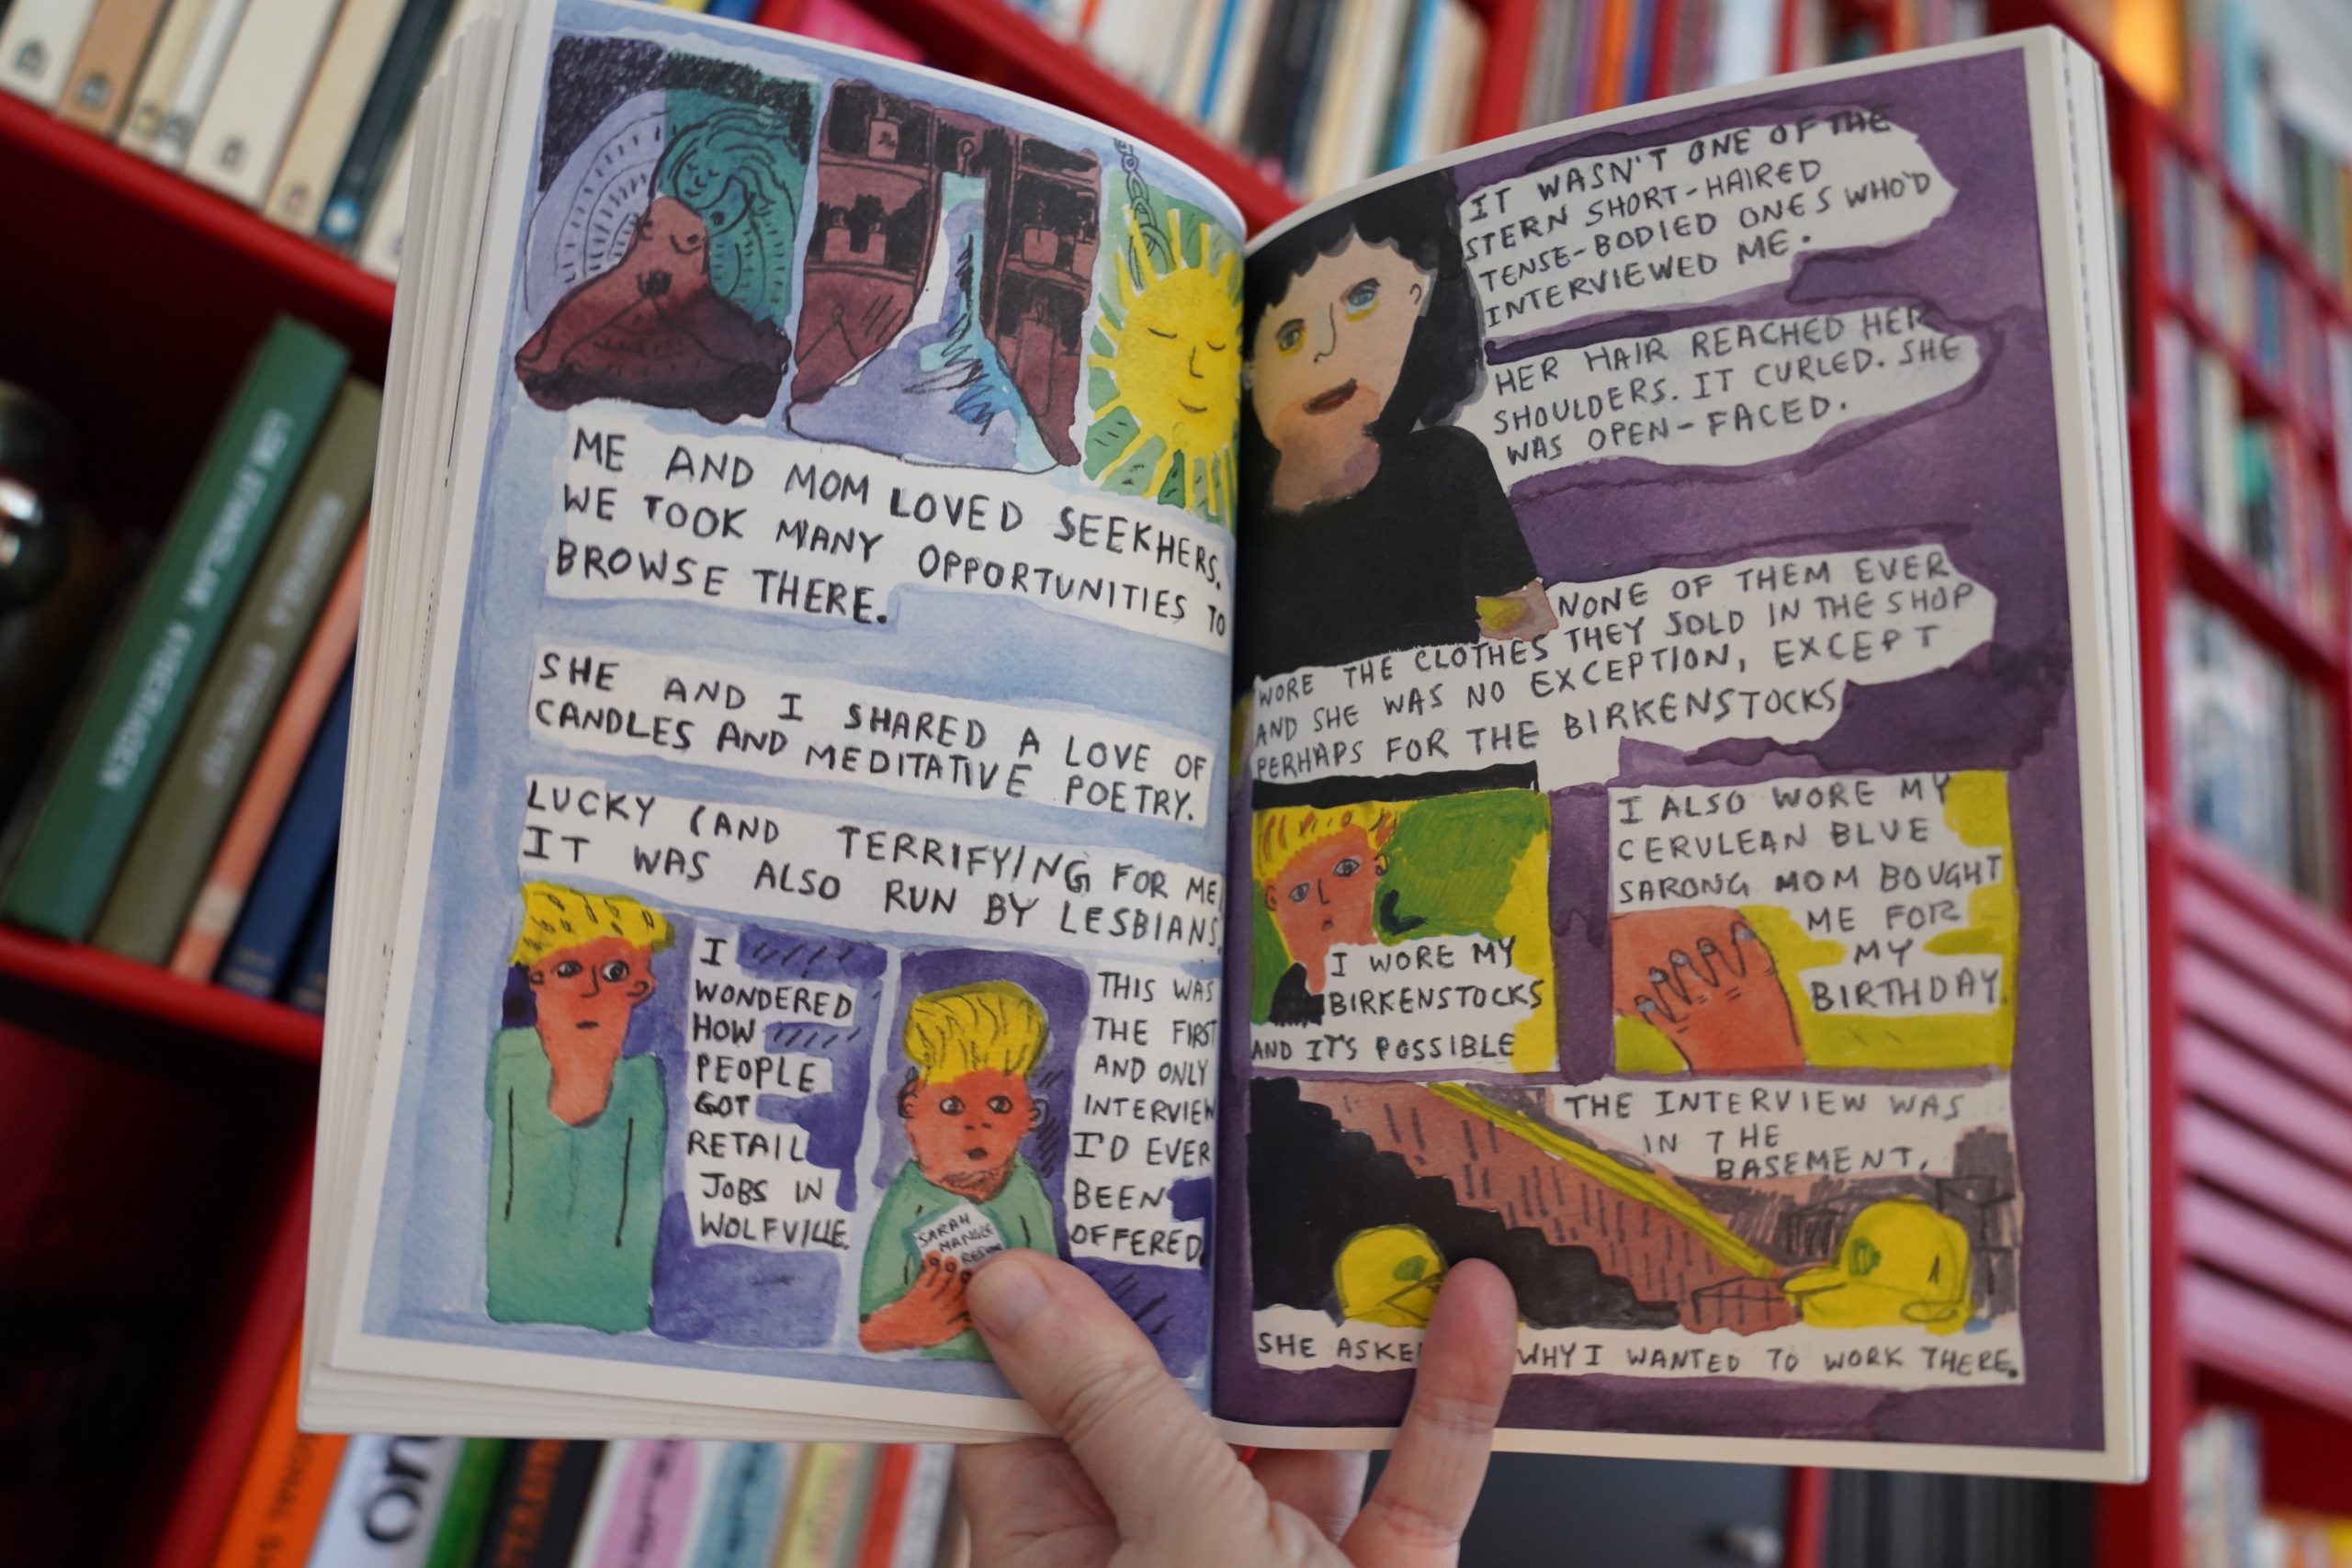 ME AND MOM LOVED SEEKHERS.
WE TOOK MANY OPPORTUNITIES TO
BROWSE THERE.
SHE AND I SHARED A LOVE OF
CANDLES AND MEDITATIVE POETRY.
LUCKY (AND TERRIFYING FOR ME
IT WAS ALSO RUN BY LESBIANS.
I
WONDERED
HOW
PEOPLE
GOT
RETAIL
JOBS IN
WOLFVILLE.
THIS WAS
THE FIRST
AND ONLY
INTERVIEW
I'D EVER
BEEN
OFFERED.
SARAH
IT WASN'T ONE OF THE
STERN SHORT-HAIRED
TENSE-BODIED ONES WHO'D
INTERVIEWED ME.
HER HAIR REACHED HER
SHOULDERS. IT CURLED. SHE
WAS OPEN-FACED.
NONE OF THEM EVER
WORE THE CLOTHES THEY SOLD IN THE SHOP
AND SHE WAS NO EXCEPTION, EXCEPT
PERHAPS FOR THE BIRKENSTOCKS
I WORE MY
BIRKENSTOCKS
AND IT'S POSSIBLE
I ALSO WORE MY
CERULEAN BLUE
SARONG MOM BOUGHT
ME FOR
MY
BIRTHDAY.
THE INTERVIEW WAS
IN THE
BASEMENT.
SHE ASKE WHY I WANTED TO WORK THERE.